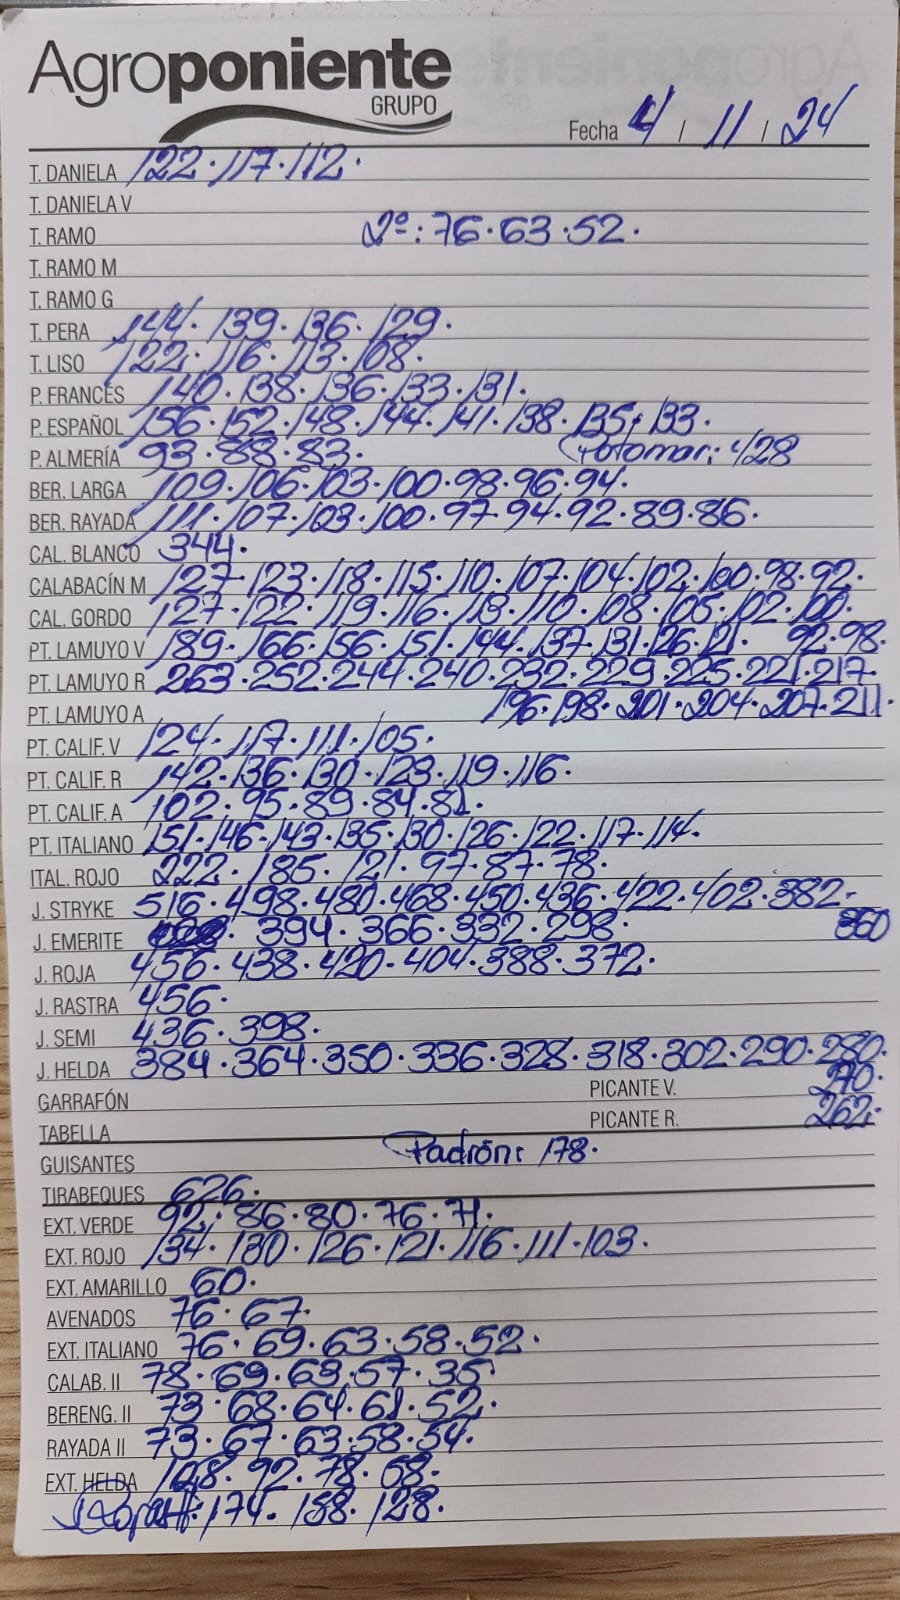 Agroponiente
GRUPO
Fecha 4 / 11 / 24
T. DANIELA 122 · 117 · 112 ·
T. DANELA V
T. RAMO 2º: 76 · 63 · 52 ·
T. RAMO M
T. RAMO G
T. PERA 144 · 139 · 136 · 129 ·
T. LISO 122 · 116 · 113 · 108 ·
P. FRANCÉS 140 · 138 · 136 · 133 · 131 ·
P. ESPAÑOL 156 · 152 · 148 · 144 · 141 · 138 · 135 · 133 ·
P. ALMERÍA 93 · 88 · 83 · 128
BER. LARGA 109 · 106 · 103 · 100 · 98 · 96 · 94 ·
BER. RAYADA 111 · 107 · 103 · 100 · 97 · 94 · 92 · 89 · 86 ·
CAL. BLANCO 344 ·
CALABACÍN M 127 · 123 · 118 · 115 · 110 · 107 · 104 · 102 · 100 · 98 · 92 ·
CAL. GORDO 127 · 122 · 119 · 116 · 113 · 110 · 108 · 105 · 102 · 100 ·
PT. LAMUYO V 189 · 166 · 156 · 151 · 144 · 137 · 131 · 126 · 121 · 92 · 98 ·
PT. LAMUYO R 263 · 252 · 244 · 240 · 232 · 229 · 225 · 221 · 217 ·
PT. LAMUYO A 196 · 198 · 201 · 204 · 207 · 211 ·
PT. CALIF. V 124 · 117 · 111 · 105 ·
PT. CALIF. R 142 · 136 · 130 · 123 · 119 · 116 ·
PT. CALIF. A 102 · 95 · 89 · 84 · 81 ·
PT. ITALIANO 151 · 146 · 143 · 135 · 130 · 126 · 122 · 117 · 114 ·
ITAL. ROJO 222 · 185 · 121 · 97 · 87 · 78 ·
J. STRYKE 516 · 498 · 480 · 468 · 450 · 436 · 422 · 402 · 382 ·
J. EMERITE 394 · 366 · 332 · 298 · 360
J. ROJA 456 · 438 · 420 · 404 · 388 · 372 ·
J. RASTRA 456 ·
J. SEMI 436 · 398 ·
J. HELDA 384 · 364 · 350 · 336 · 328 · 318 · 302 · 290 · 280 ·
GARRAFÓN PICANTE V. 270 ·
TABELLA PICANTE R. 262 ·
GUISANTES Padrón: 178 ·
TIRABEQUES 626 ·
EXT. VERDE 92 · 86 · 80 · 76 · 71 ·
EXT. ROJO 134 · 130 · 126 · 121 · 116 · 111 · 103 ·
EXT. AMARILLO 60 ·
AVENADOS 76 · 67 ·
EXT. ITALIANO 76 · 69 · 63 · 58 · 52 ·
CALAB. II 78 · 69 · 63 · 57 · 35
BERENG. II 73 · 68 · 64 · 61 · 52 ·
RAYADA II 73 · 67 · 63 · 58 · 54 ·
EXT. HELDA 92 · 78 · 68 ·
174 · 158 · 128 ·